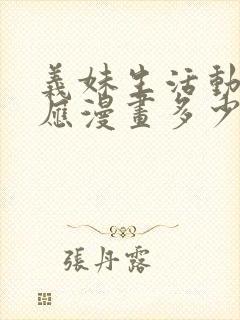 義妹生活動
應漫畫多少
張丹露